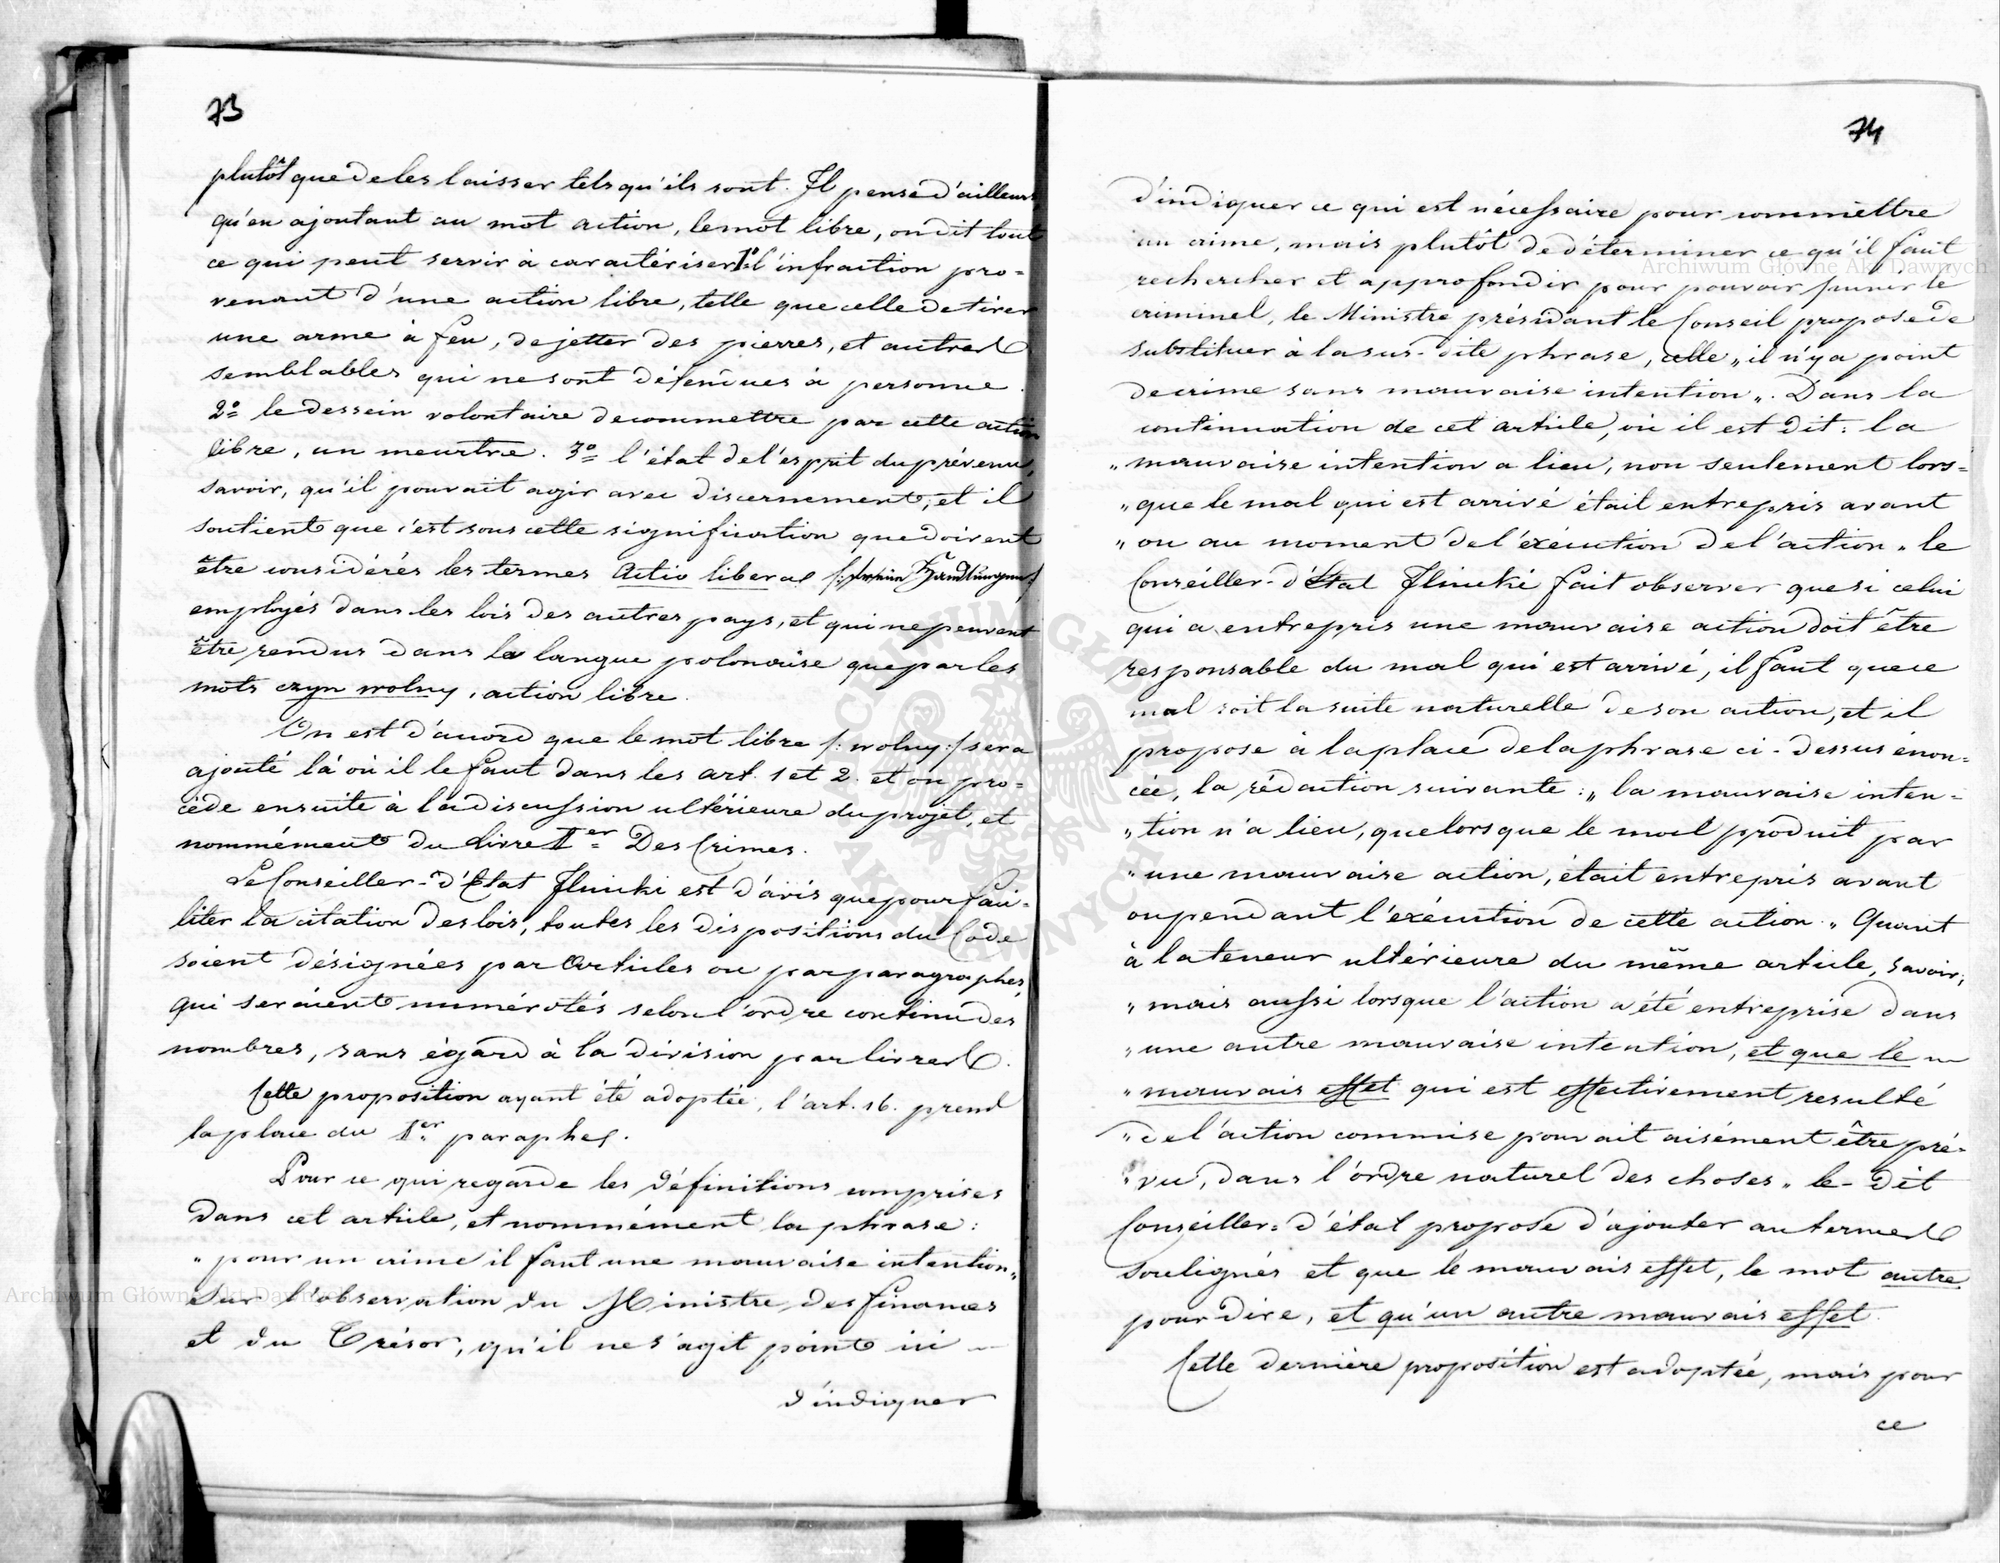 73
plutôt que de les laisser tels qu'ils sont. Il pense d'ailleurs
qu'en ajoutant au mot action, le mot libre, on dit tout
ce qui peut servir à caractériser 1º l'infraction pro=
venant d'une action libre, telle que celle de tirer
une arme à feu, de jetter des pierres, et autres
semblables qui ne sont défendues à personne.
2º le dessein volontaire de commettre par cette action
libre, un meurtre. 3º l'état de l'esprit du prévenu,
savoir, qu'il pouvait agir avec discernement; et il
soutient que c'est sous cette signification que doivent
être considérés les termes Actio liberae /: freie Handlungen :/
employés dans les lois des autres pays, et qui ne peuvent
être rendus dans la langue polonaise que par les
mots czyn wolny, action libre.
On est d'accord que le mot libre /: wolny :/ sera
ajouté là où il le faut dans les art. 1 et 2. et on pro=
cède ensuite à la discussion ultérieure du projet, et
nommément du Livre I er Des Crimes.
Le Conseiller-d'État Ilinicki est d'avis que pour faci=
liter la citation des lois, toutes les dispositions du Code
soient désignées par Articles ou par paragraphes,
qui seraient numérotés selon l'ordre continu des
nombres, sans égard à la division par livres.
Cette proposition ayant été adoptée, l'art. 16. prend
la place du 1er paraphes.
Pour ce qui regarde les définitions comprises
dans cet article, et nommément la phrase:
„ pour un crime il faut une mauvaise intention„
Sur l'observation du Ministre des finances
et du Trésor, qu'il ne s'agit point ici
d'indiquer
74
d'indiquer ce qui est nécessaire pour commettre
un crime, mais plutôt de déterminer ce qu'il faut
rechercher et approfondir pour pouvoir punir le
criminel, le Ministre présidant le Conseil propose de
substituer à la sus-dite phrase, celle „ il n'y a point
de crime sans mauvaise intention„. Dans la
continuation de cet article, où il est dit: la
„ mauvaise intention a lieu, non seulement lors=
„ que le mal qui est arrivé était entrepris avant
„ ou au moment de l'éxécution de l'action „ le
Conseiller-d'État Ilinicki fait observer que si celui
qui a entrepris une mauvaise action doit être
responsable du mal qui est arrivé, il faut que ce
mal soit la suite naturelle de son action, et il
propose à la place de la phrase ci-dessus énon=
cée, la rédaction suivante: „ la mauvaise inten=
„ tion n'a lieu, que lorsque le mal produit par
„ une mauvaise action, était entrepris avant
ou pendant l'exécution de cette action „ Quant
à la teneur ultérieure du même article, savoir;
„ mais aussi lorsque l'action a été entreprise dans
„ une autre mauvaise intention, et que le
„ mauvais effet qui est effectivement resulté
„ de l'action commise pouvait aisément être pré=
„ vu, dans l'ordre naturel des choses „ le-dit
Conseiller=d'état propose d'ajouter au termes
soulignés et que le mauvais effet, le mot autre
pour dire, et qu'un autre mauvais effet.
Cette dernière proposition est adoptée, mais pour
ce
Archiwum Główne Akt Dawnych
Archiwum Główne Akt Dawnych
ARCHIWUM GŁÓWNE AKT DAWNYCH